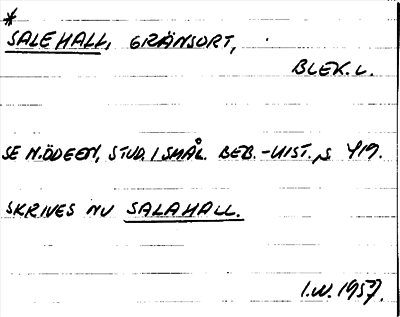 *
SALEHALL, GRÄNSORT,
BLEK. L.
SE N. ÖDEEN, STUD. I SMÅL. BEB.-HIST., S. 419.
SKRIVES NU SALAHALL.
I.W. 1957.